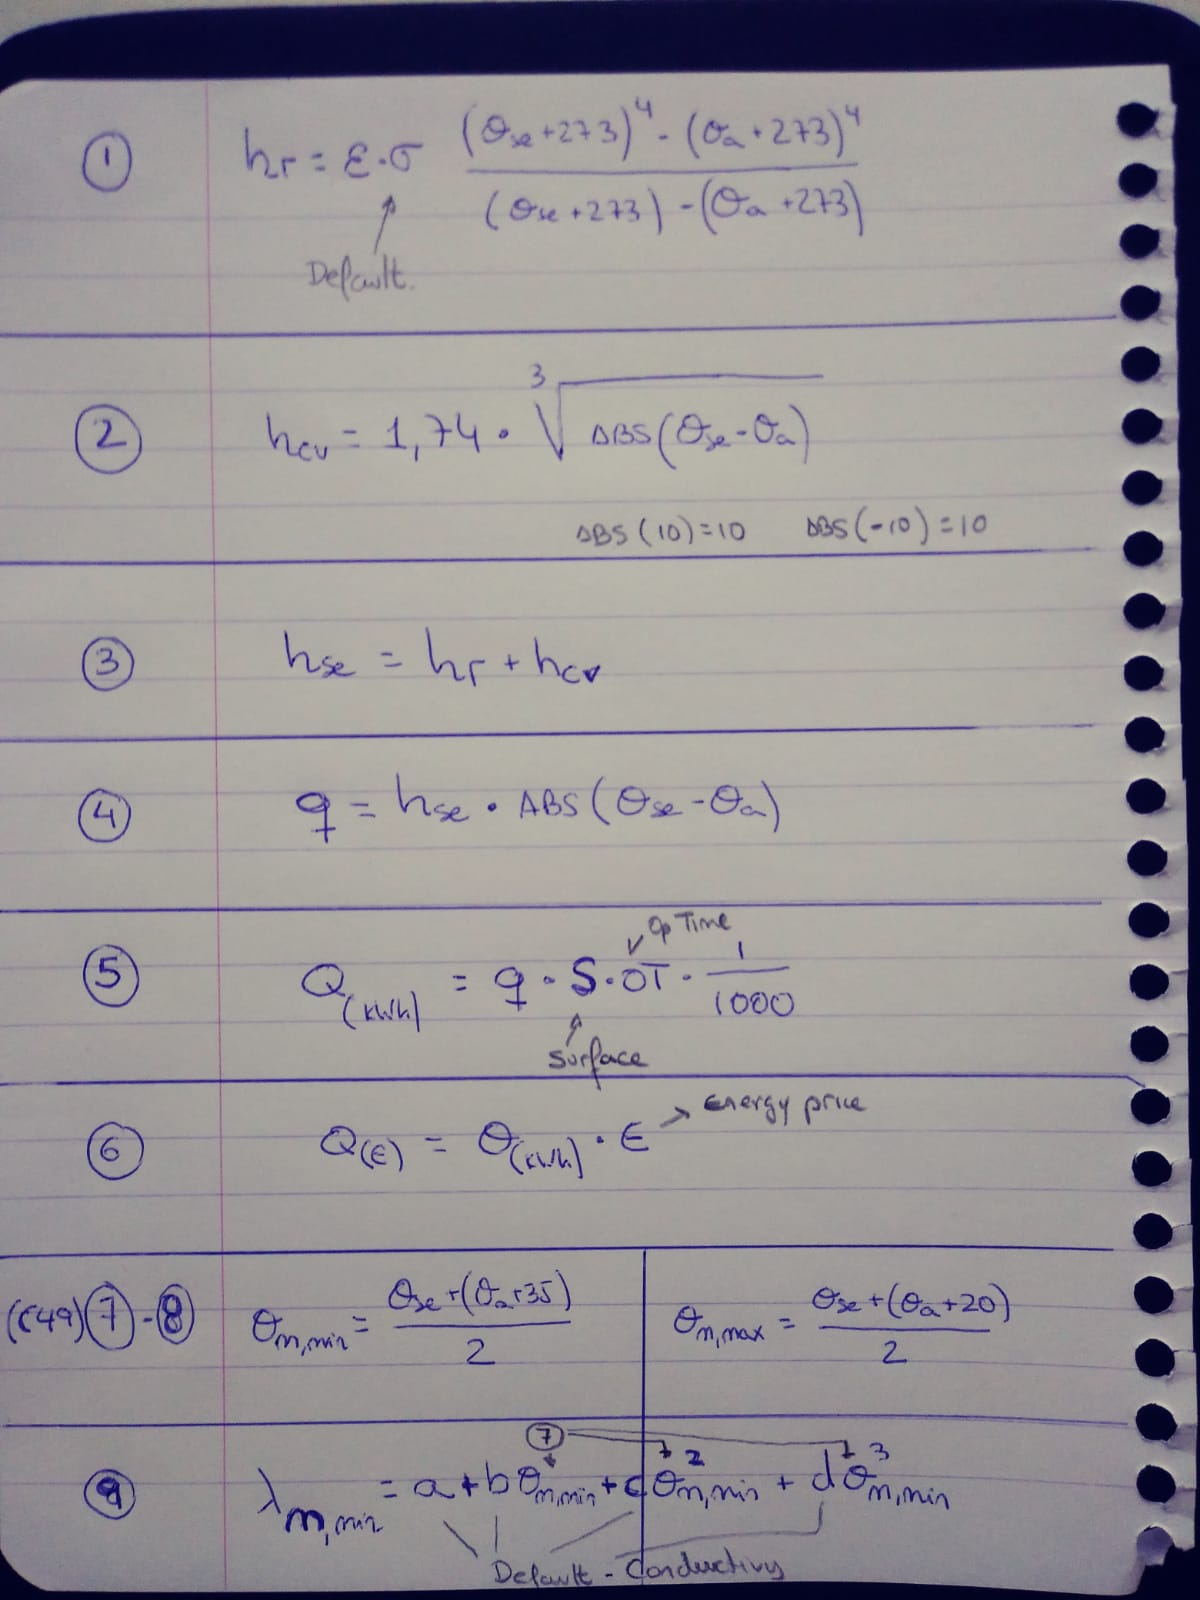 ① hr = ε.σ (θse+273)⁴ - (θa+273)⁴ / (θse+273) - (θa+273)
Default.
② hcv = 1,74 • ³√ABS(θse-θa)
ABS(10)=10 ABS(-10)=10
③ hse = hr + hcv
④ q = hse • ABS(θse-θa)
Op Time
⑤ Q(kWh) = q • S.OT • 1/1000
Surface
Energy price
⑥ Q(€) = Q(kWh) • €
(C49) ⑦-⑧ θm,min = θse+(θa+35) / 2 θm,max = θse+(θa+20) / 2
⑦
⑨ λm,min = a+bθm,min + cθ²m,min + dθ³m,min
Default - Conductivy